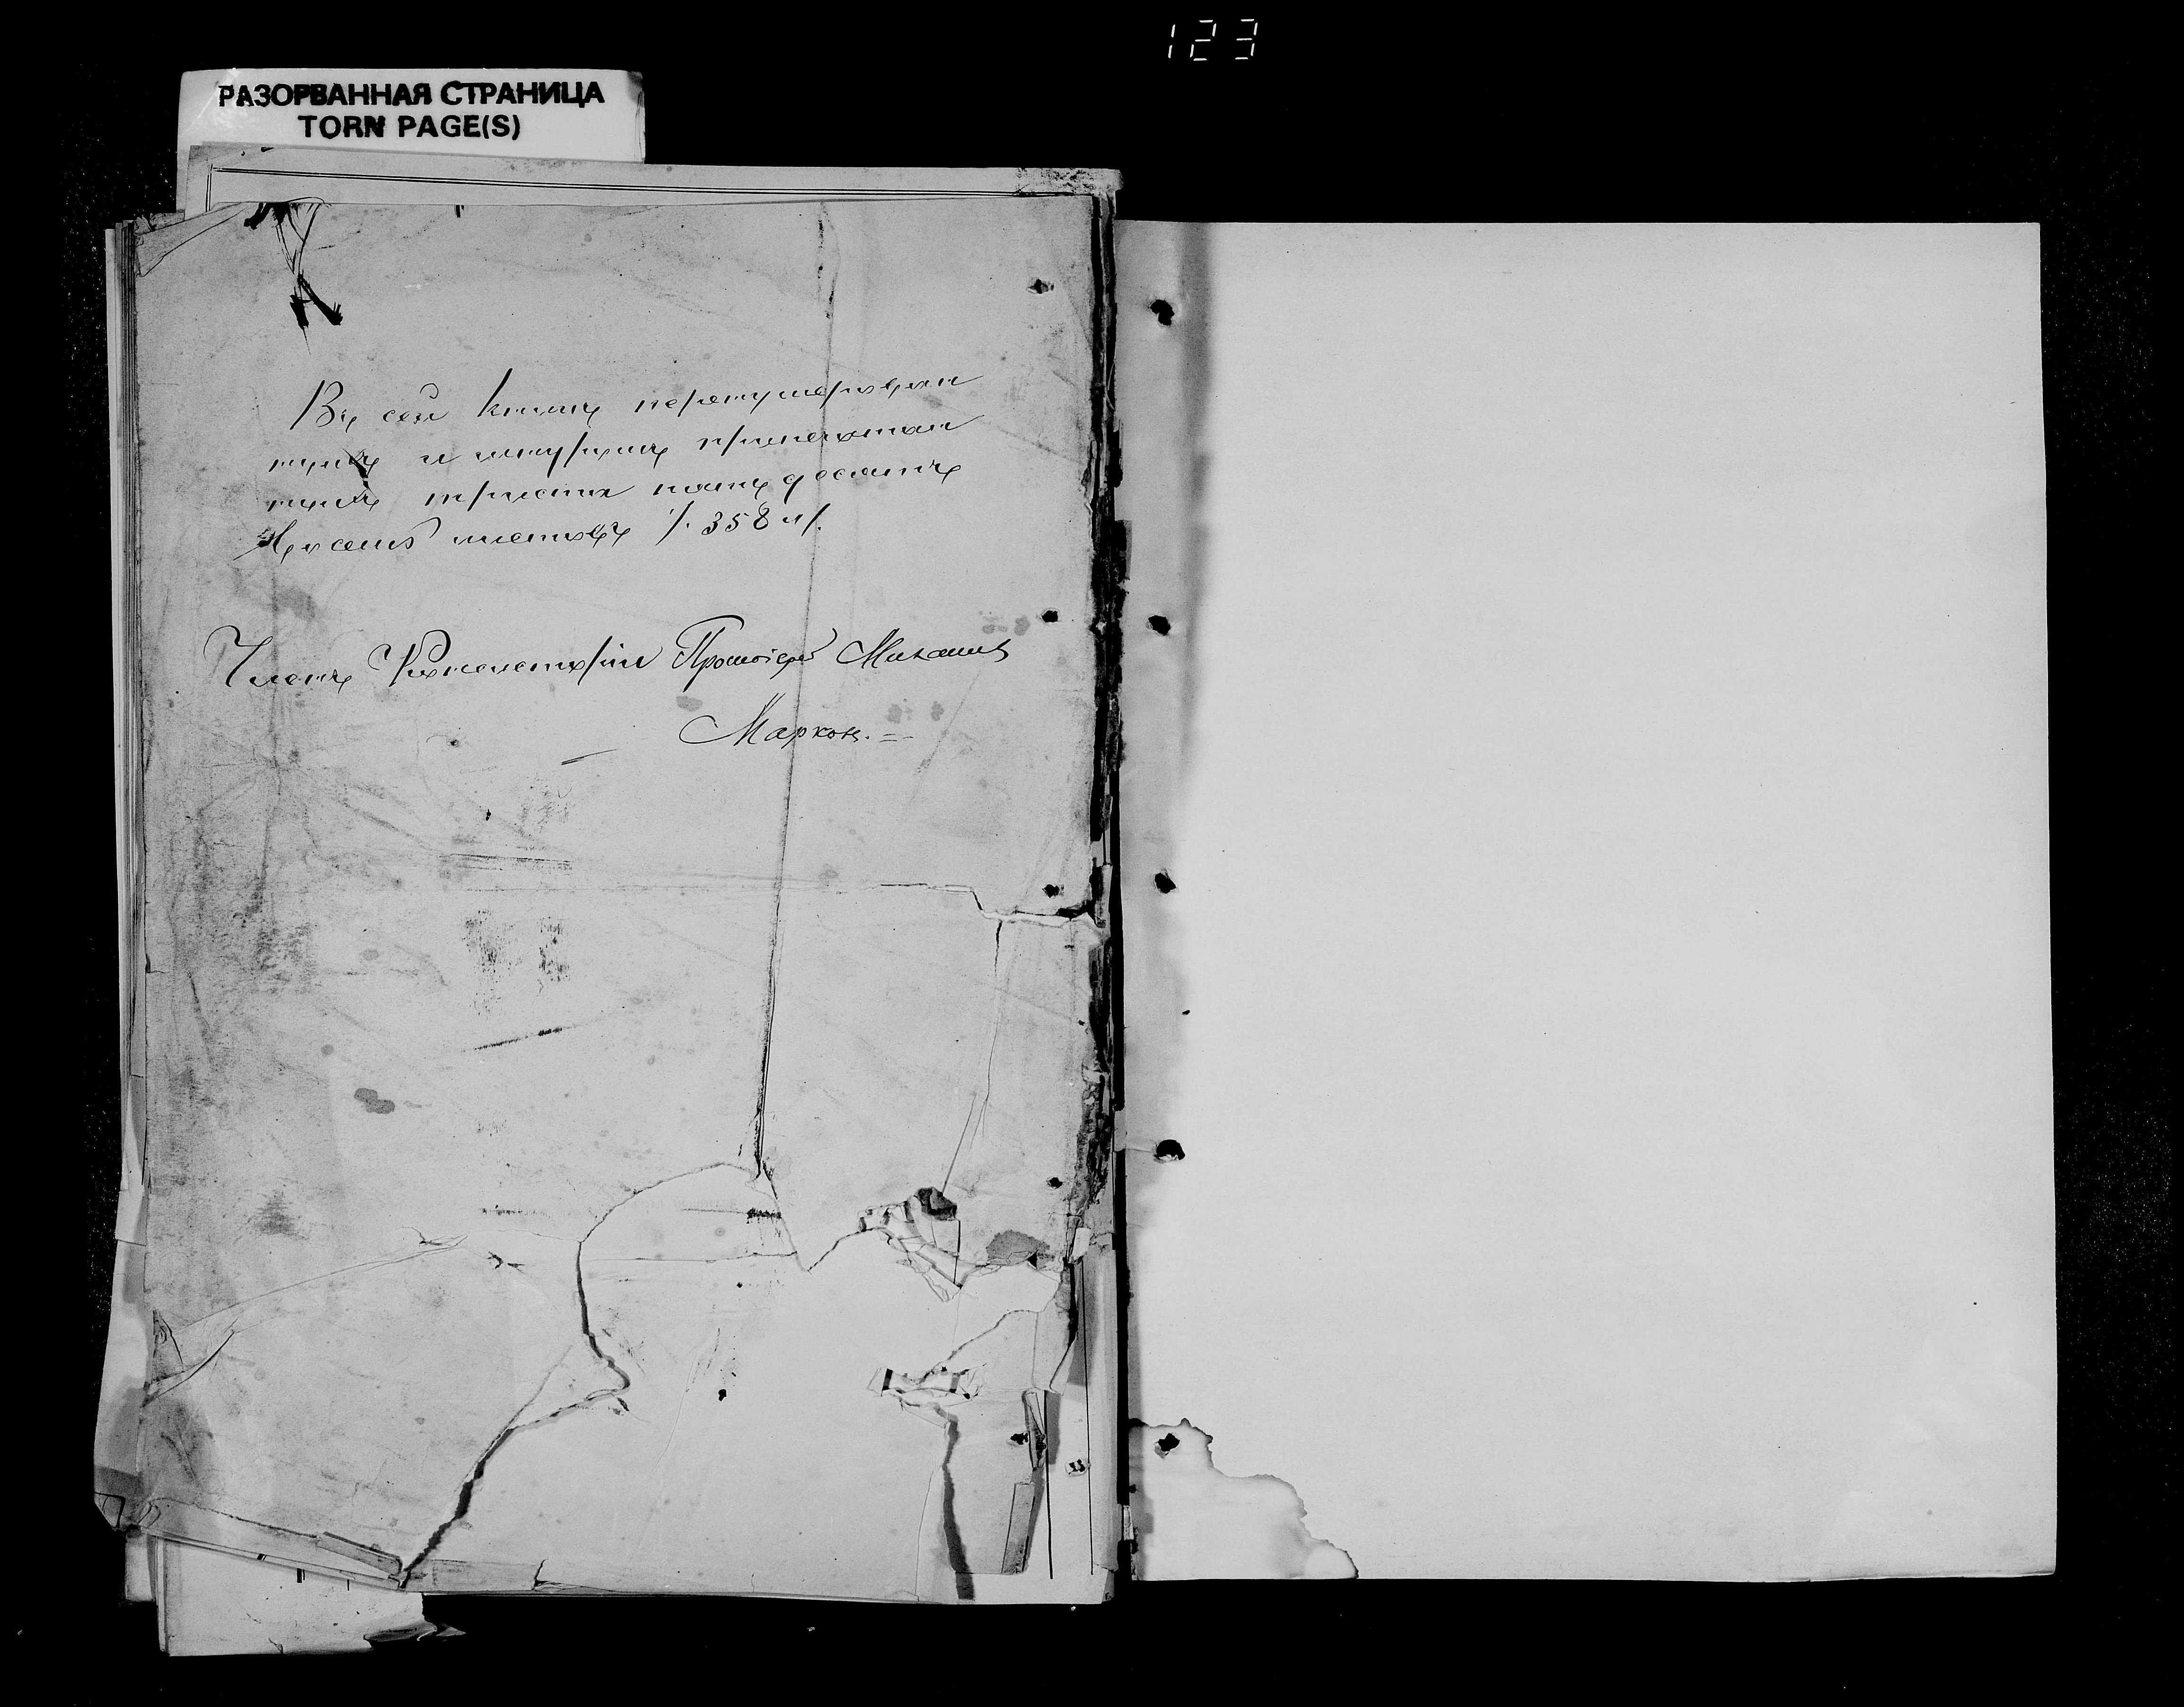 123
РАЗОРВАННАЯ СТРАНИЦА
TORN PAGE(S)
Въ сей книгѣ перенумерован
ныхъ и шнуромъ припечатан
ныхъ триста пятьдесятъ
восемь листовъ /. 358 л/.
Членъ Консисторіи Протоіерей Михаилъ
Марков. =